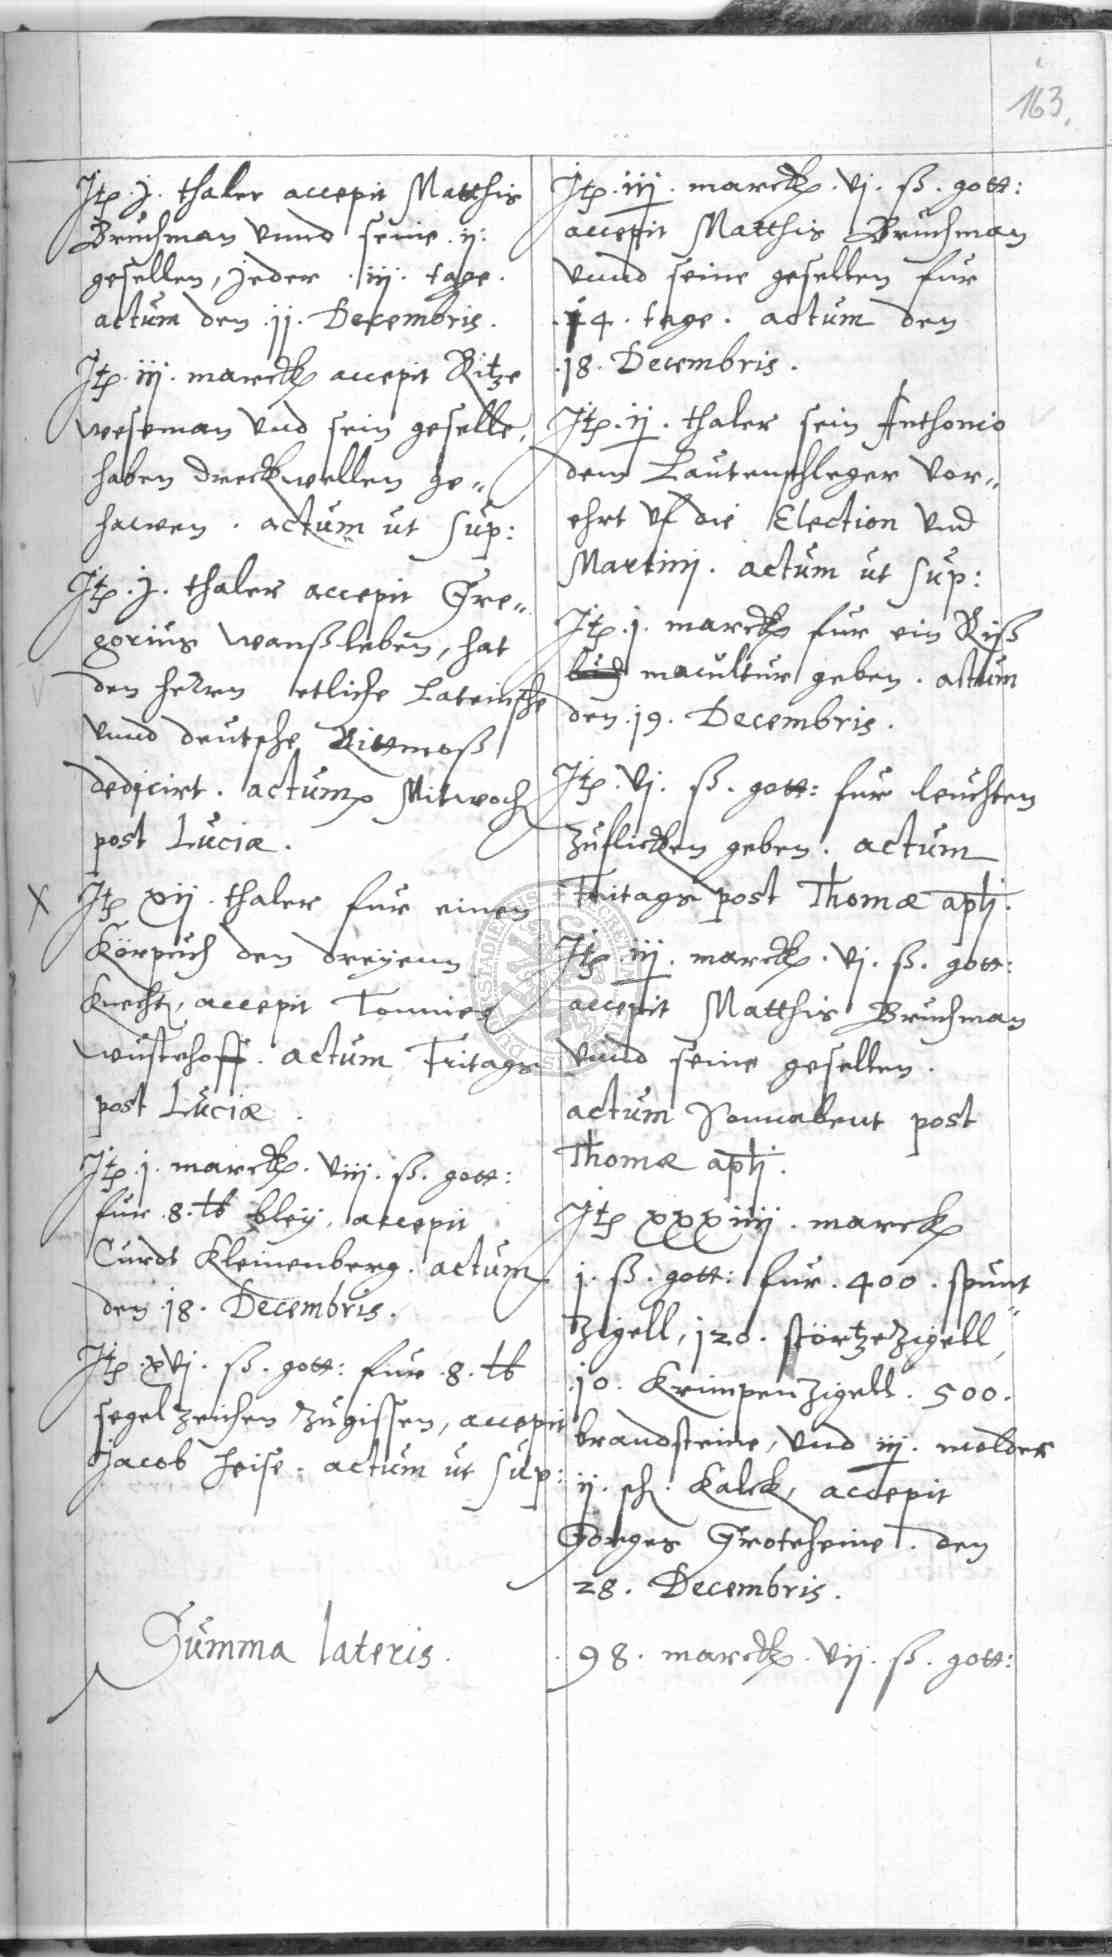 163.
Jtz. j. thaler accepit Matthis
Bruchman vnnd seine .ij.
gesellen, jeder .iij. tage.
actum den .jj. Decembris.
Jtz. iij. marck accepit Ritze
weseman vnd sein geselle,
haben dreckwellen ge„
hawen. actum ut sup:
Jtz. j. thaler accepit Gre„
gorius wanßleben, hat
den herrn etliche Lateinische
vnnd deutsche
dedicirt. actum Mitwoch
post Luciæ.
X Jtz xij. thaler fur einen
Körpuch den dreyenn
Knecht, accepit Tonnies
wustehoff. actum Fritags
post Luciæ.
Jtz. j. marck. viij. ß. gott:
fur .8. lb bley, accepit
Curdt Kleinenberg. actum
den .j8. Decembris.
Jtz. xvj. ß. gott: fur .8. lb
segel zeichen zugissen, accepit
Jacob Heise. actum ut sup:
Jtz. iij. marck. vj. ß. gott:
accepit Matthis Bruchman
vnnd seine gesellen fur
.j4. tage. actum den
.j8. Decembris.
Jtz. ij. thaler sein Anthonio
dem Lautenschleger vor„
ehrt vf die Election vnd
Martinj. actum ut sup:
Jtz. j. marck fur ein Riß
macultur geben. actum
den .j9. Decembris.
Jtz. vj. ß. gott: fur leuchten
zuflicken geben. actum
Fritags post Thomæ aptj.
Jtz. iij. marck. vj. ß. gott:
accepit Matthis Bruchman
vnnd seine gesellen.
actum Sonnabent post
Thomæ aptj.
Jtz xxxiiij. marck
j. ß. gott: fur .400. spunt„
zigell, j20. störtzezigell,
.j0. Krimpenzigell. 500.
brandsteine, vnd iij. molder
ij. sch. Kalck, accepit
Gorges Groteheine. den
28. Decembris.
Summa lateris. 98. marck. vij. ß. gott: